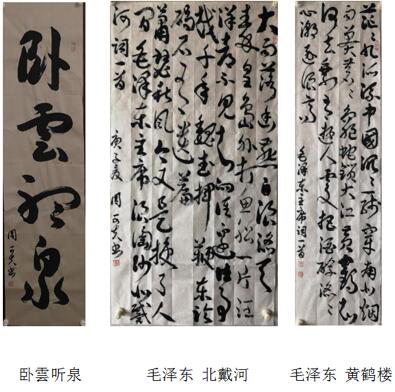 卧雲聽泉
大雨落幽燕白浪滔天
秦皇島外打魚船一片汪
洋都不見知向誰邊往事
越千年魏武揮鞭東臨
碣石有遺篇
蕭瑟秋風今又是換了人
间毛泽东主席浪淘沙北戴
河词一首
庚子夏
茫茫九派流中國沉沉一线穿南北烟
雨莽苍苍龟蛇锁大江黄鹤知
何去剩有遊人處把酒酹滔滔
心潮逐浪高
毛泽东主席词一首
卧雲听泉
毛泽东 北戴河
毛泽东 黄鹤楼